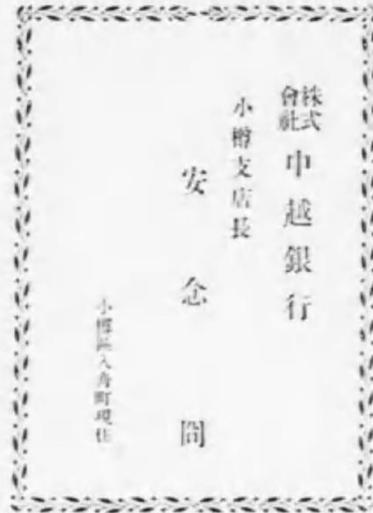 株式會社 中越銀行
小樽支店長
安念
小樽區入舟町現住